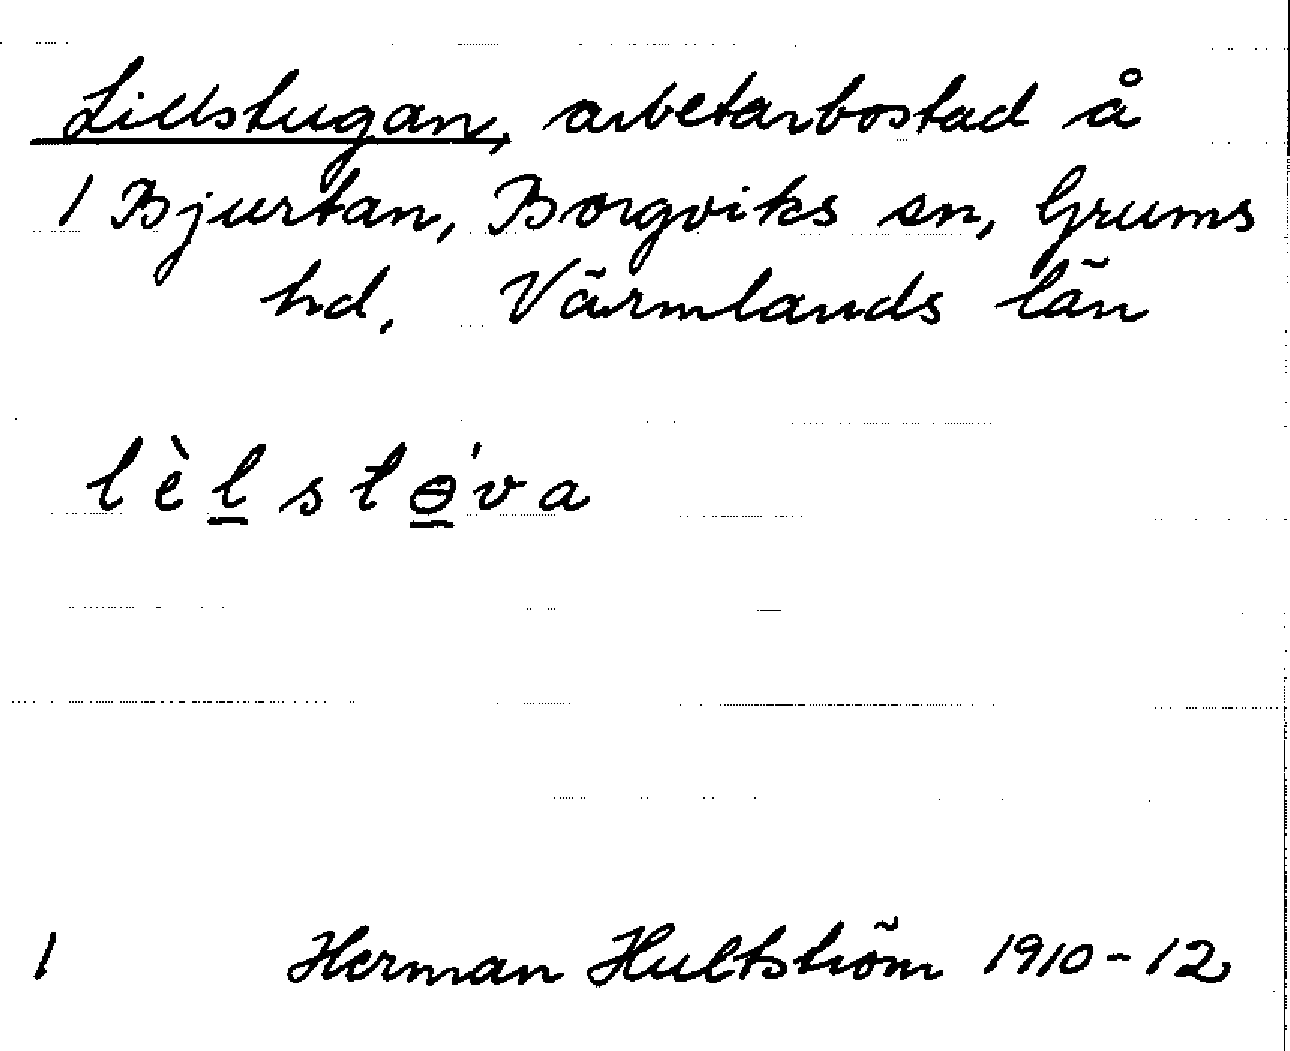 Lillstugan, arbetarbostad å
1 Bjurtan, Borgviks sn, Grums
hd. Värmlands län
lèl̲stɵ̲́va
1 Herman Hultström 1910-12